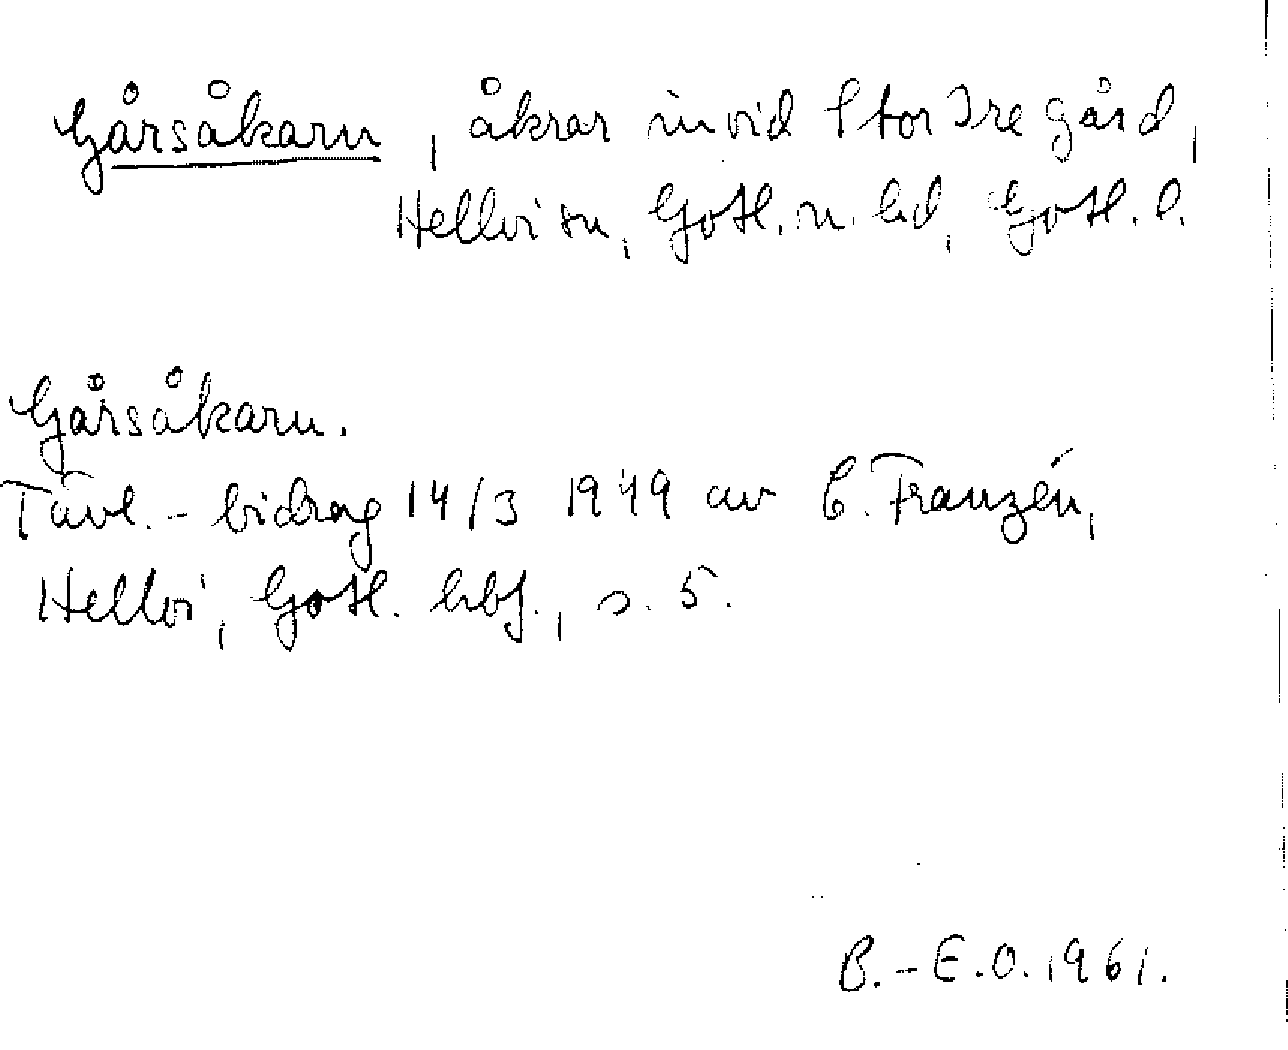 Gårsåkarn, åkrar invid Stor Ire gård,
Hellvi sn, Gotl. n. hd, Gotl. l.
Gårsåkarn.
Tävl.-bidrag 14/3 1949 av C. Franzén,
Hellvi, Gotl. hbf., s. 5.
B.-E.O. 1961.